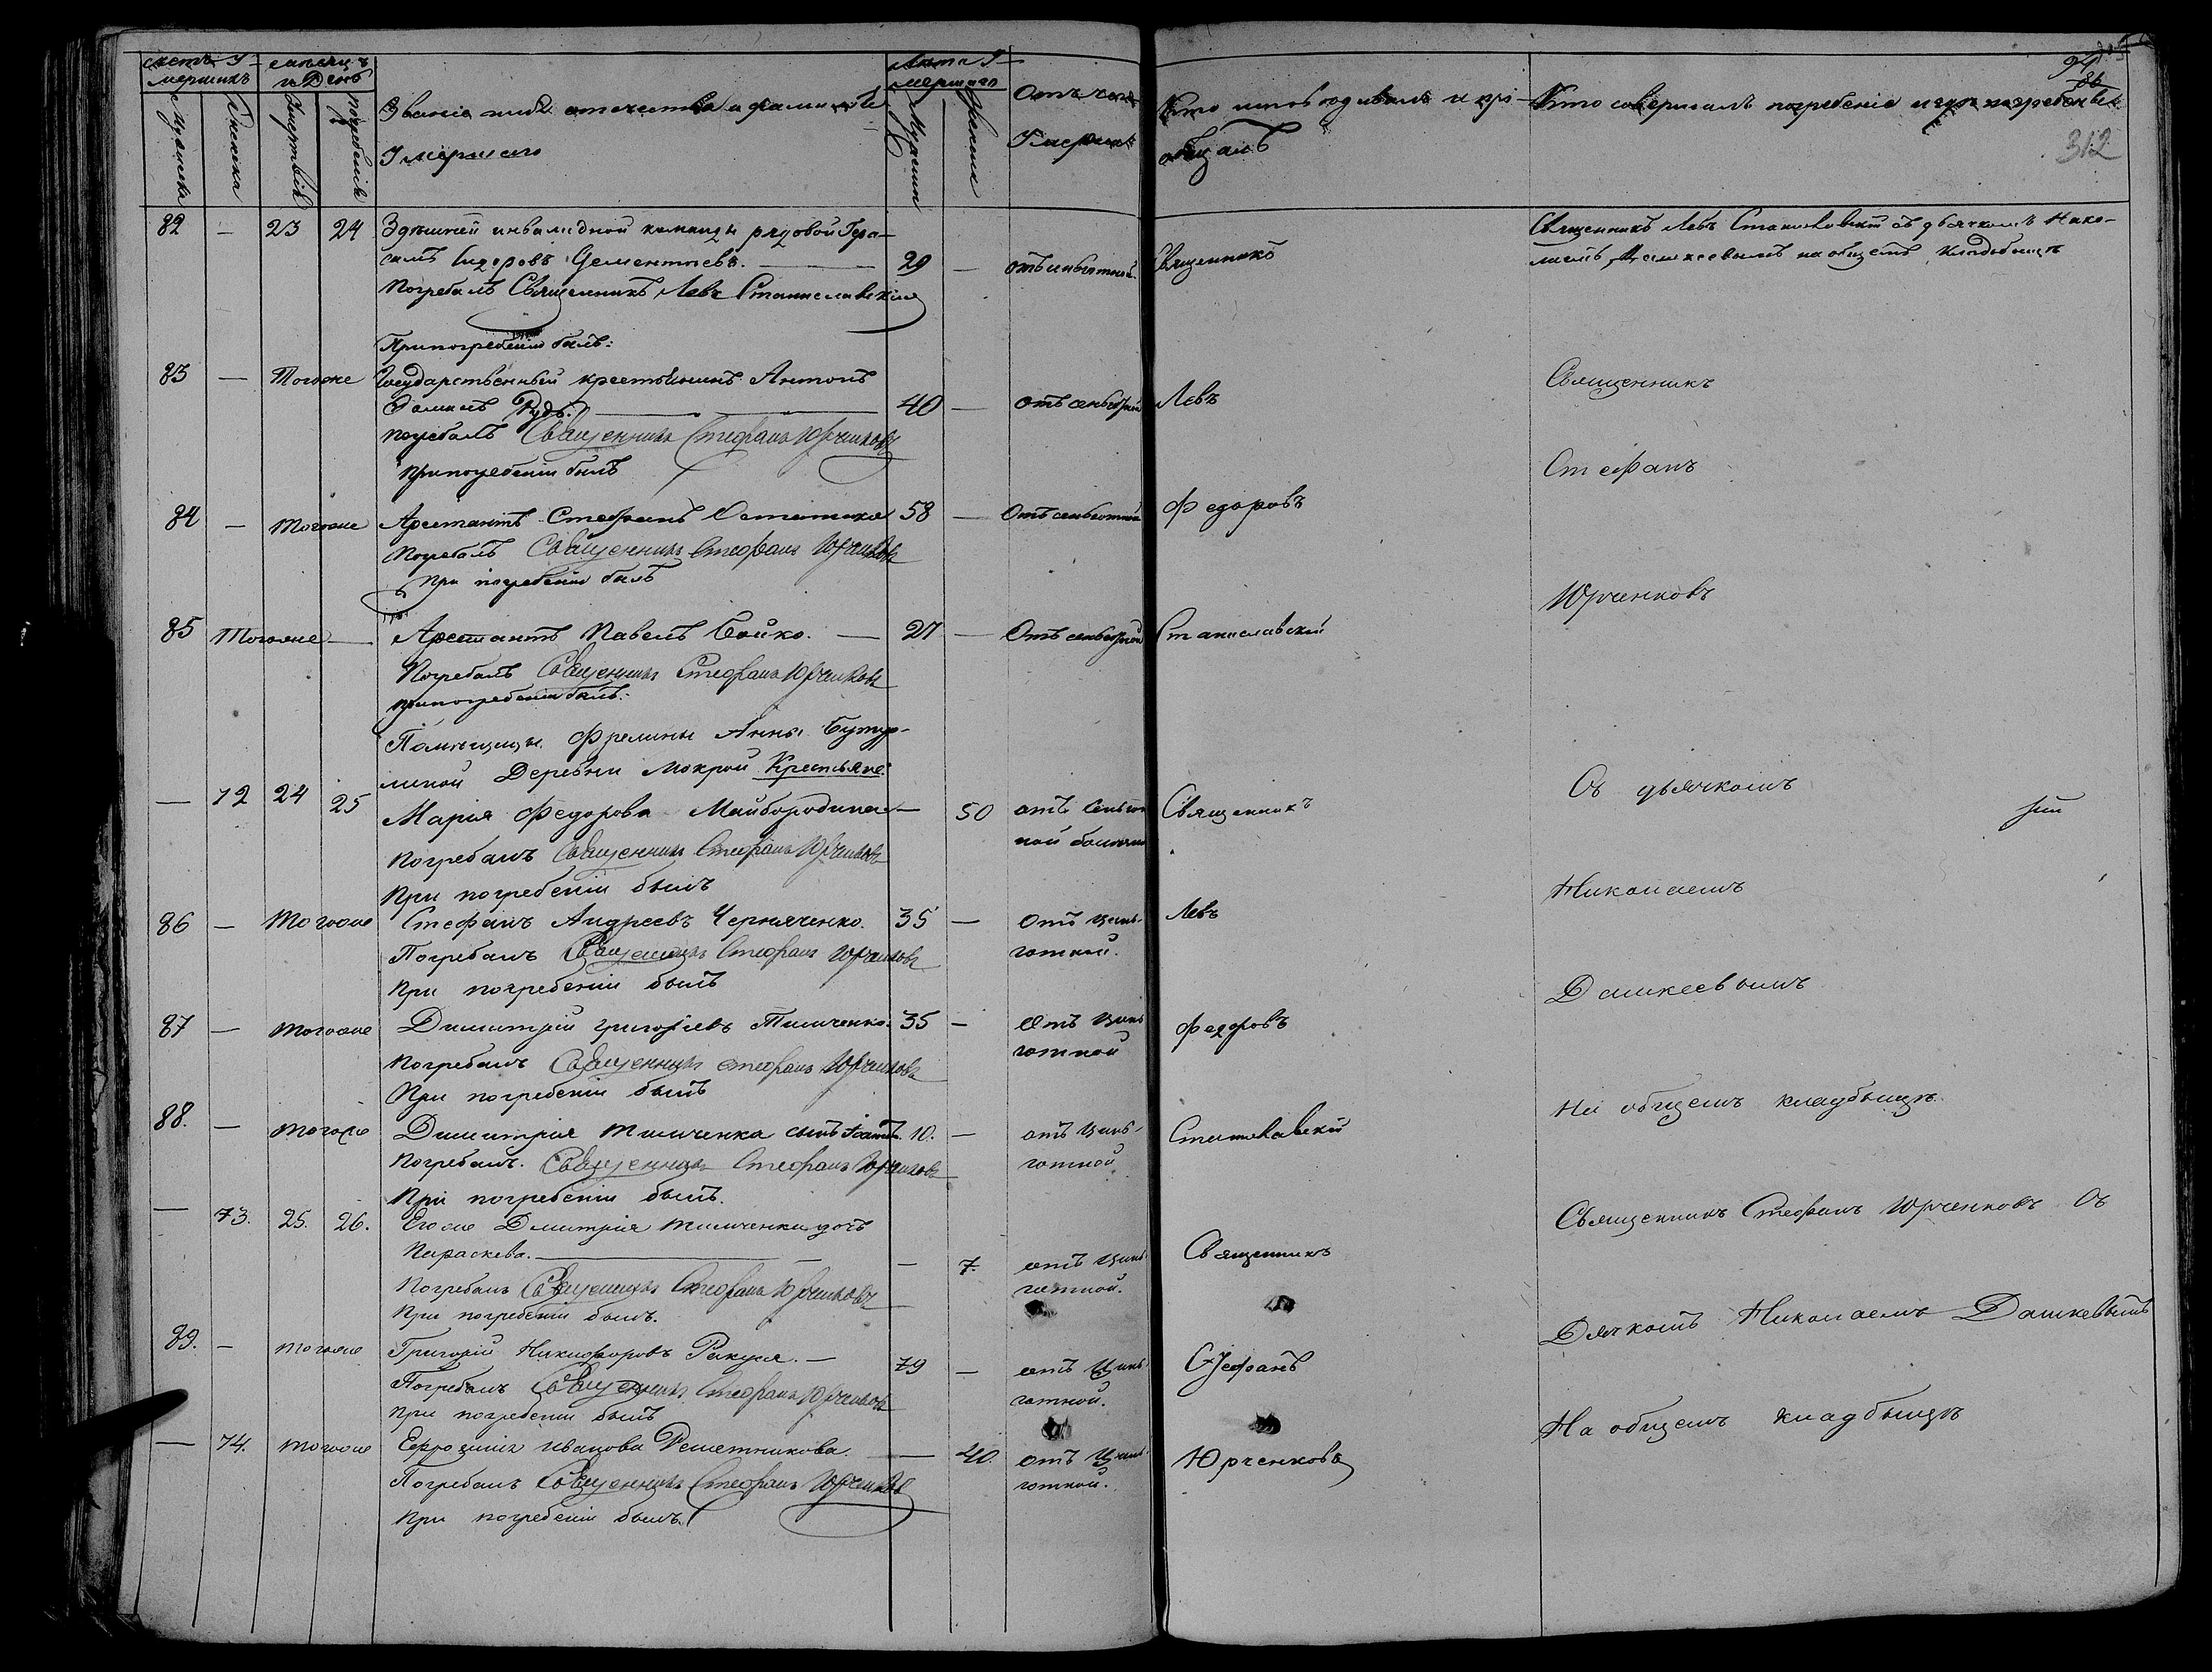 счетъ У-
мершихъ
мѣсяцъ
и День
Мужеска
Женска
Смерти
погребенія
Званіе имя отчество и фамилія
Умершаго
Лѣта У-
мершаго
Мужеск
Женска
Отъ чего
Умеръ
Кто исповѣдывалъ и прі-
общалъ
Кто совершалъ погребеніе и гдѣ погребены
94
86
312
82 — 23 24 Здѣшней инвалидной команды рядовой Гера-
симъ Сидоровъ Дементьевъ. 29 — отъ Священникъ
Погребалъ Священникъ Левъ Станиславскій
Священникъ Левъ Станиславскій съ дьячкомъ Нико-
лаемъ Дашкеевымъ на общемъ кладбищѣ
При погребеніи былъ:
83 — Тогоже Государственный крестьянинъ Антонъ
Рудь. 40 — отъ Левъ
погребалъ Священникъ Стефанъ Юрченковъ
при погребеніи былъ
Священникъ
Стефанъ
84 — тогоже Арестантъ Стефанъ 58 — Отъ Федоровъ
Погребалъ Священникъ Стефанъ Юрченковъ
При погребеніи былъ
Юрченковъ
85 Тогоже — Арестантъ Павелъ Бойко. — 27 — Отъ Станиславскій
Погребалъ Священникъ Стефанъ Юрченковъ
при погребеніи былъ:
Помѣщицы Фрелины Анны Бутур-
линой Деревни Мокрой Крестьяне:
— 72 24 25 Марія Федорова Майбородина — 50 отъ Цынгот
ной болѣзни Священникъ
Съ дьячкомъ
Погребалъ Священникъ Стефанъ Юрченковъ
При погребеніи былъ
Николаемъ
86 — Тогоже Стефанъ Андреевъ Черняченко. 35 — Отъ Цынь- Левъ
Погребалъ Священникъ Стефанъ Юрченковъ готной.
При погребеніи былъ
Дашкеевымъ
87 — тогоже Димитрій Григорьевъ Тимченко. 35 — Отъ Цынь Федоровъ
Погребалъ Священникъ Стефанъ Юрченковъ готной
При погребеніи былъ
На общемъ кладбищѣ
88. — тогоже Димитрія Тимченка сынъ Іоаннъ. 10. — отъ Цынь- Станиславскій
Погребалъ. Священникъ Стефанъ Юрченковъ готной
При погребеніи былъ.
— 73. 25. 26. Егоже Дмитрія Тимченки дочь
Параскева. — 7. отъ Цынь Священникъ
Погребалъ Священникъ Стефанъ Юрченковъ готной.
При погребеніи былъ.
Священникъ Стефанъ Юрченковъ Съ
Дячкомъ Николаемъ Дашкевымъ
89. — тогоже Григорій Никифоровъ Ракуля. — 79 — отъ Цынь Стефанъ
Погребалъ Священникъ Стефанъ Юрченковъ готной.
При погребеніи былъ
На общемъ кладбищѣ
— 74. тогоже Ефросинія Иванова Решетникова. — 40. отъ Цынь Юрченковъ
Погребалъ Священникъ Стефанъ Юрченковъ готной.
При погребеніи былъ.